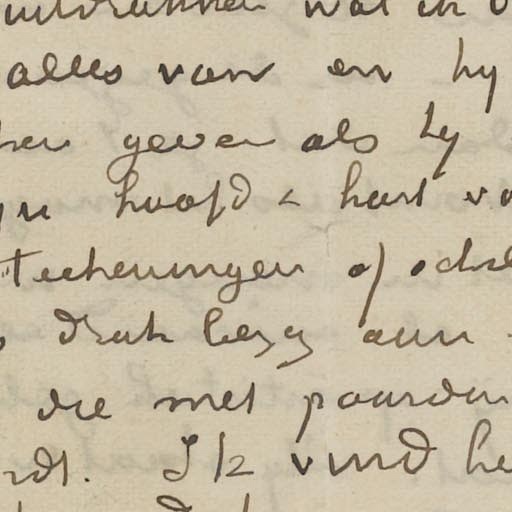 uitdrukken wat ik
alles van en hy
geven als hy
hoofd & hart
teekeningen of
druk bezig aan
die met paarden
rdt. Ik vind he